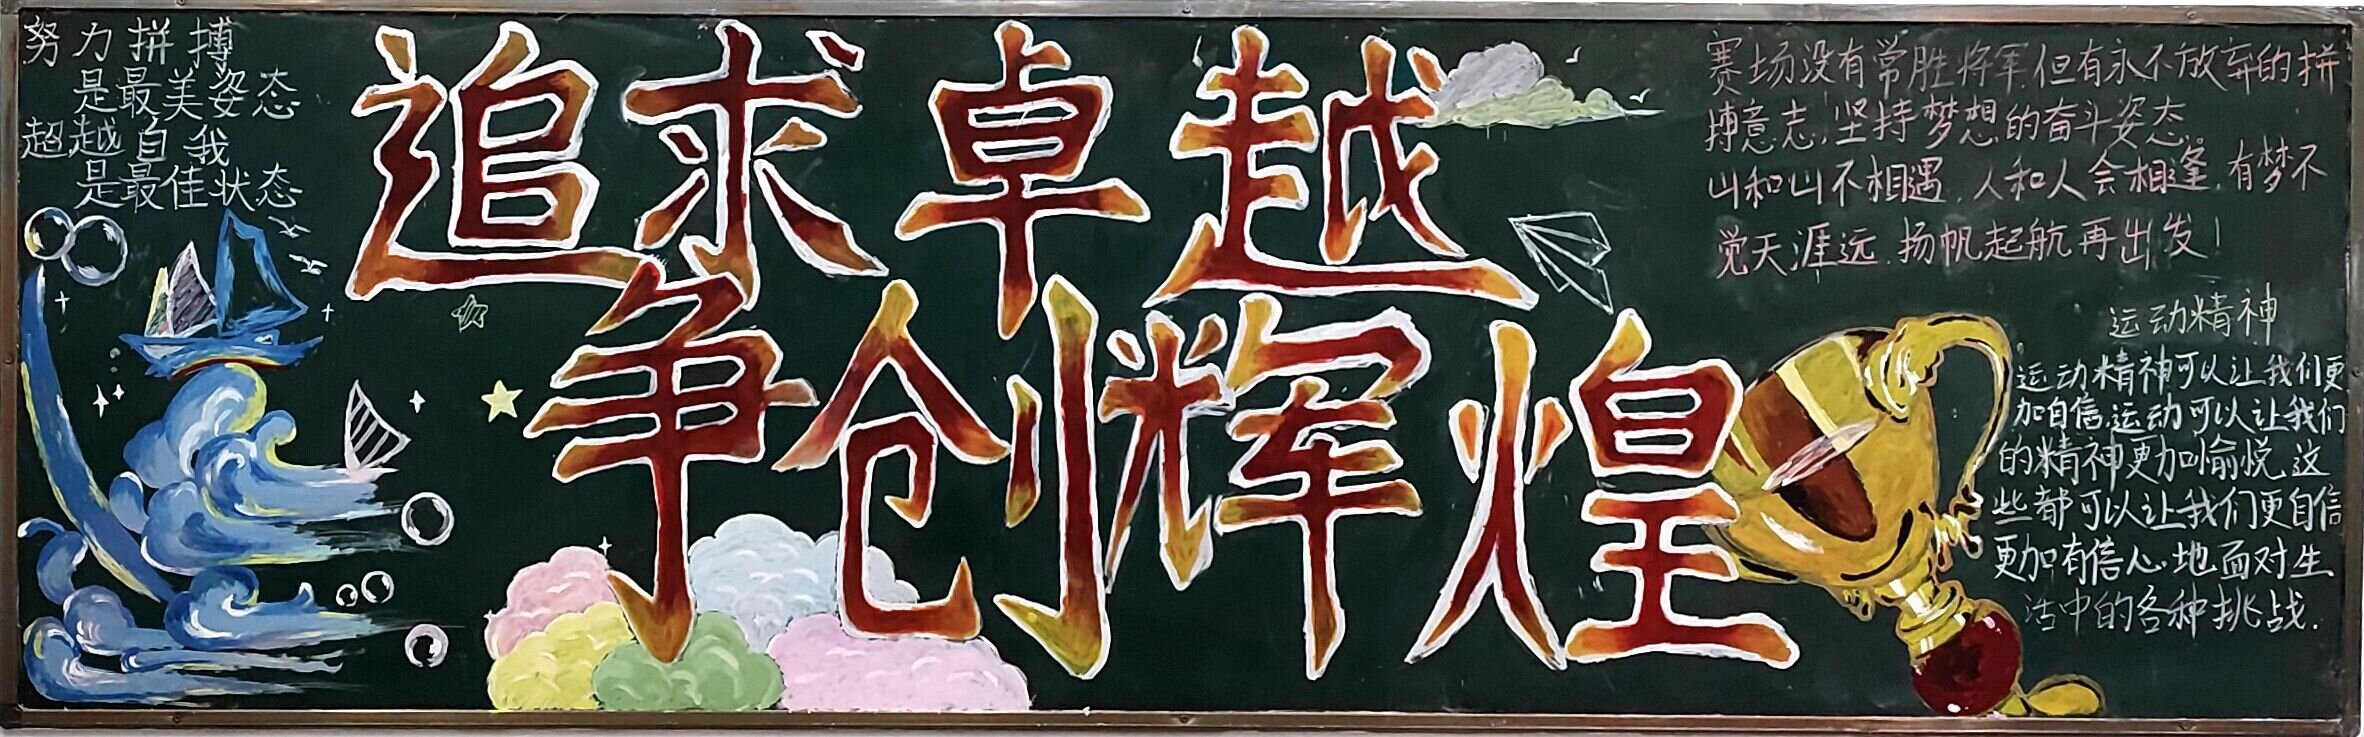 努力拼搏
是最美姿态
超越自我
是最佳状态
追求卓越
争创辉煌
赛场没有常胜将军,但有永不放弃的拼
搏意志,坚持梦想的奋斗姿态。
山和山不相遇,人和人会相逢,有梦不
觉天涯远,扬帆起航再出发!
运动精神
运动精神可以让我们更
加自信,运动可以让我们
的精神更加愉悦,这
些都可以让我们更自信
更加有信心地面对生
活中的各种挑战.